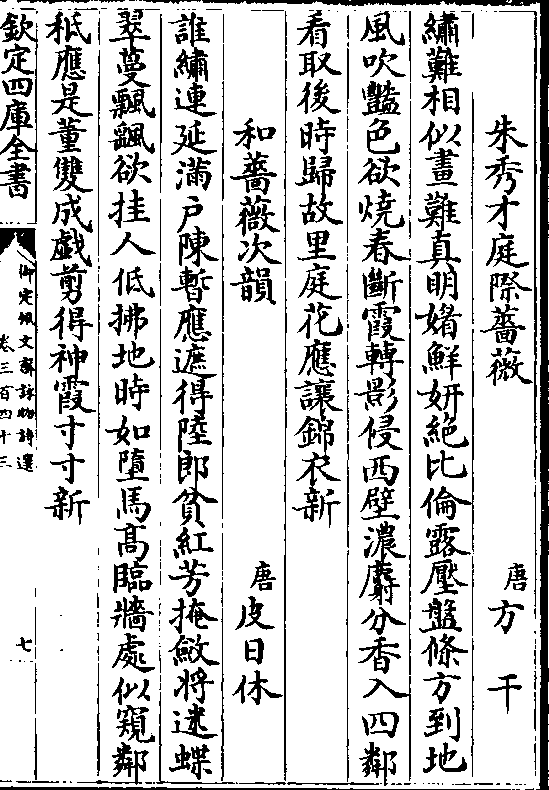 朱秀才庭際薔薇　唐方干
繡難相似畫難真明媚鮮妍絶比倫露壓盤條方到地
風吹豔色欲燒春斷霞轉影侵西壁濃麝分香入四鄰
看取後時歸故里庭花應讓錦衣新
和薔薇次韻　唐皮日休
誰繡連延滿戸陳暫應遮得陸郎貧紅芳掩斂將迷蝶
翠蔓飄颻欲挂人低拂地時如墮馬髙臨牆處似窺鄰
秪應是董雙成戲剪得神霞寸寸新
欽定四庫全書
御定佩文齋詠物詩選
卷三百四十三
七